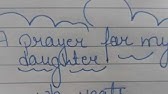 A prayer for my
daughter